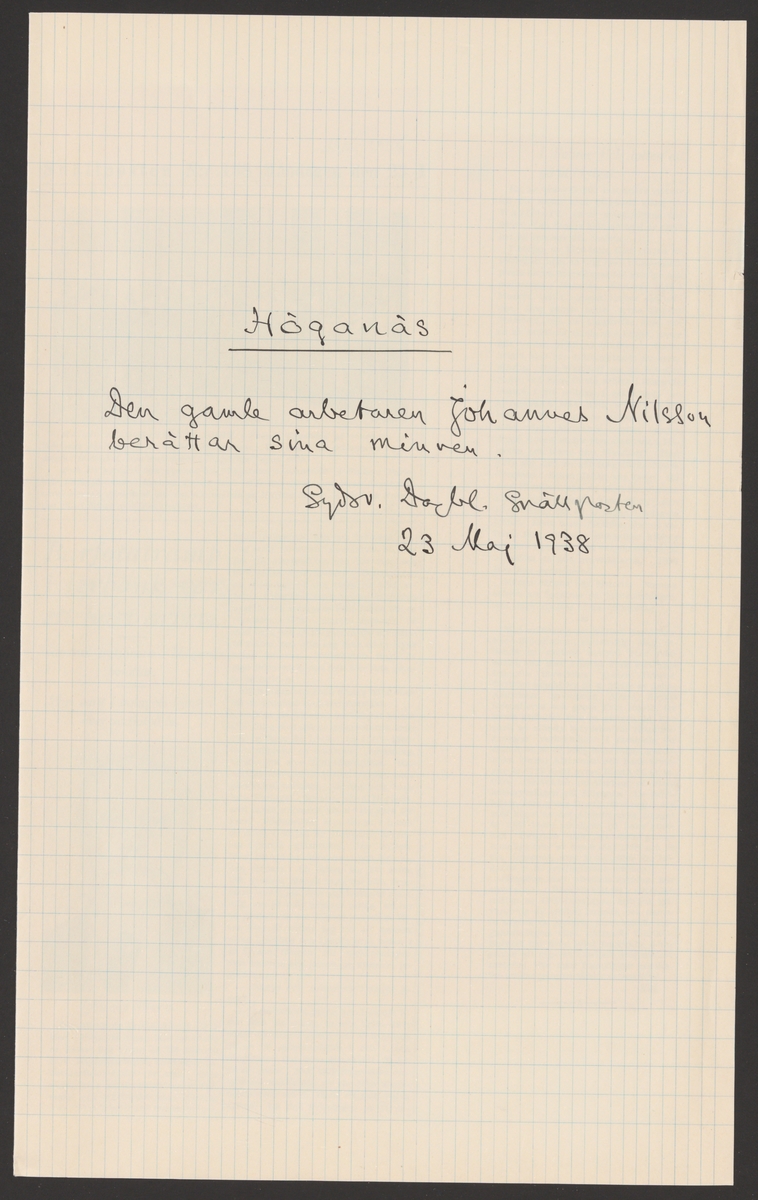 Höganäs
Den gamle arbetaren Johannes Nilsson
berättar sina minnen.
Sydsv. Dagbl. Snällposten
23 Maj 1938